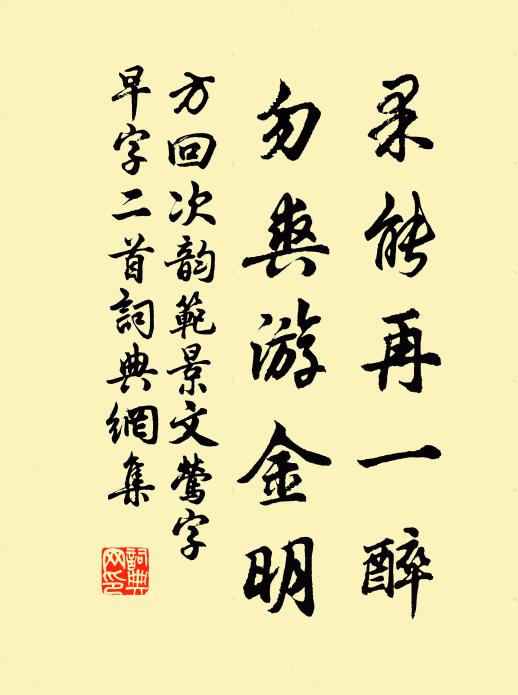 果能再一醉
勿爽游金明
方回次韵範景文鶯字
早字二首詞典網集
詞典網印